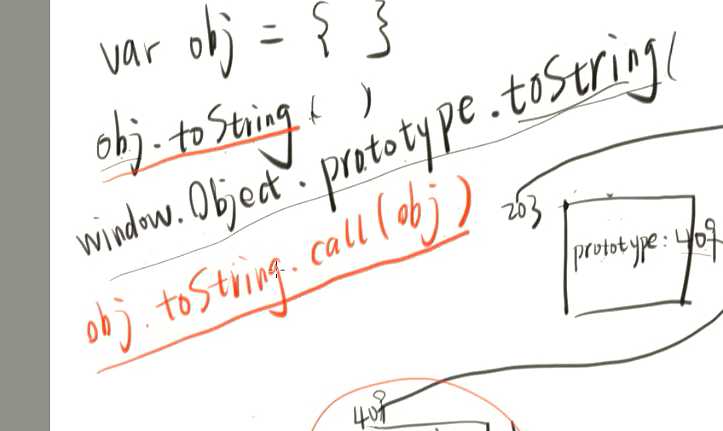 var obj = { }
obj.toString( )
window.Object.prototype.toString(
obj.toString.call(obj)
203
prototype: 409
409